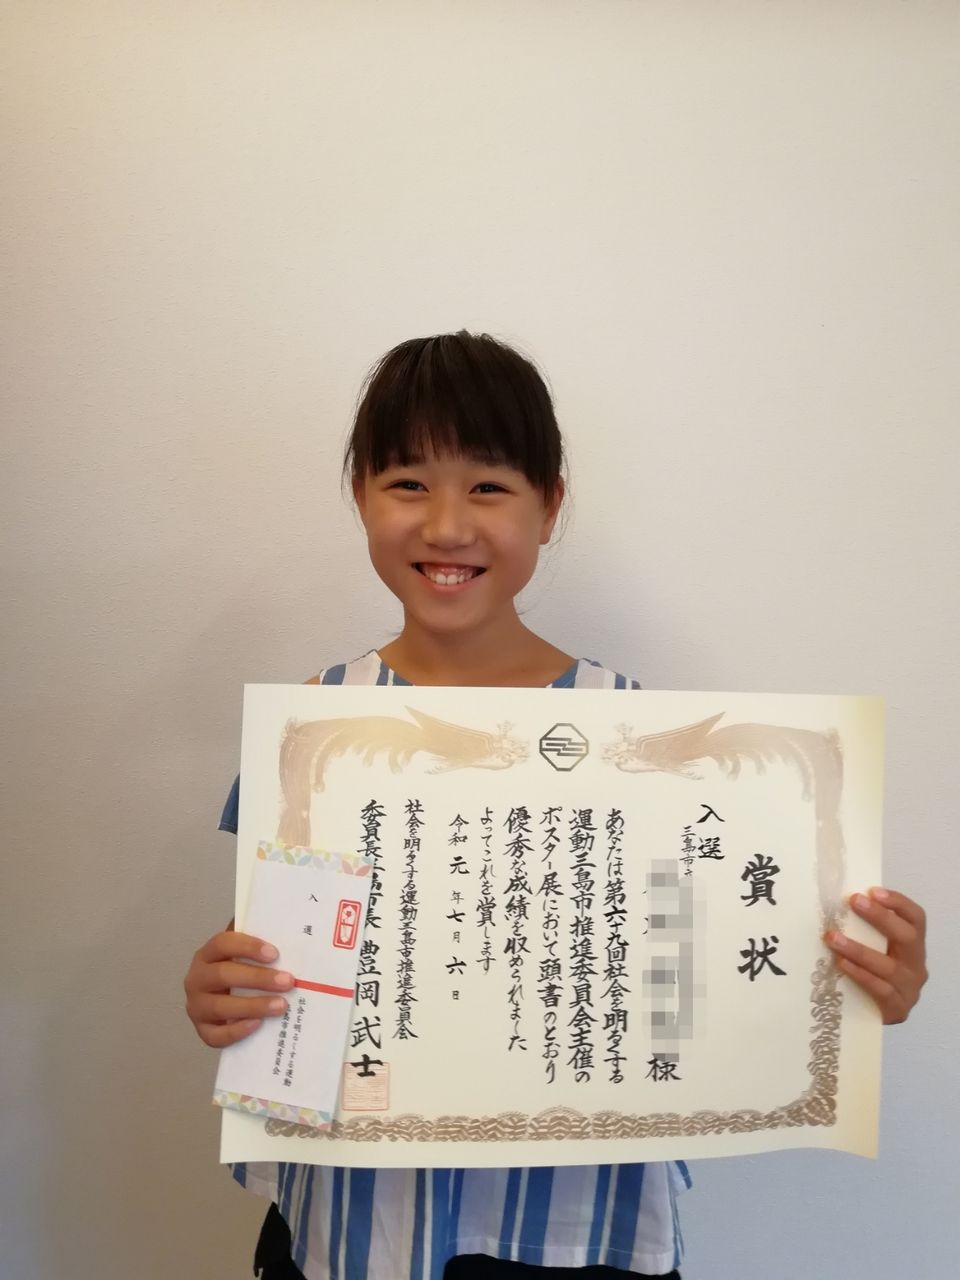 賞状
入選
三島市立
様
あなたは第六十九回社会を明るくする
運動三島市推進委員会主催の
ポスター展において頭書のとおり
優秀な成績を収められました
よってこれを賞します
令和元年七月六日
社会を明るくする運動三島市推進委員会
委員長三島市長 豊岡武士
入選
社会を明るくする運動
三島市推進委員会